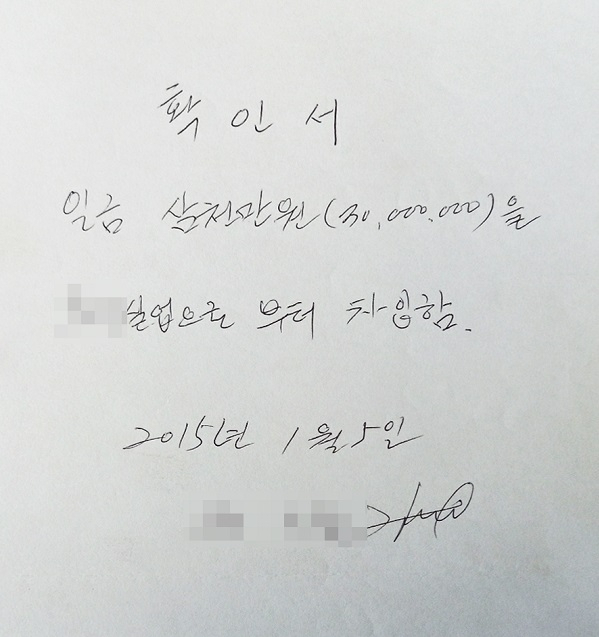 확인서
일금 삼천만원(30,000,000)을
실업으로 부터 차입함.
2015년 1월 5일